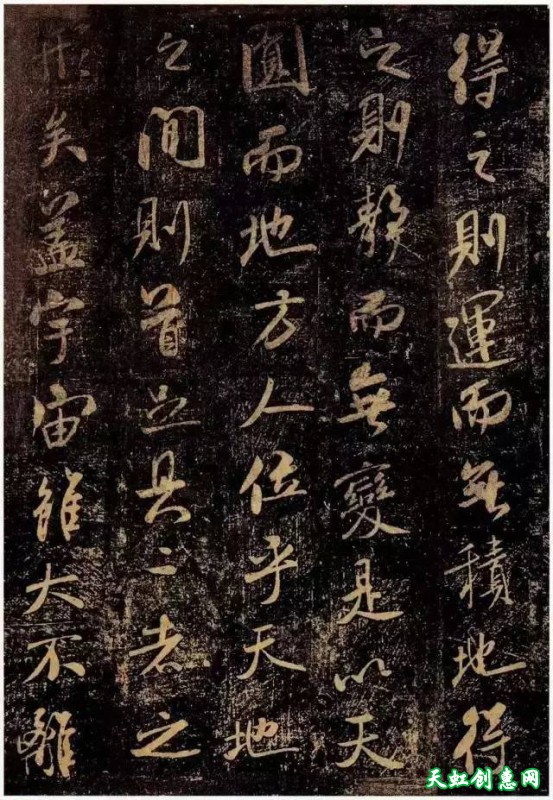 得之則運而無積地得
之則靜而無變是以天
圓而地方人位乎天地
之間則首足具二者之
形矣蓋宇宙雖大不離
天虹创惠网